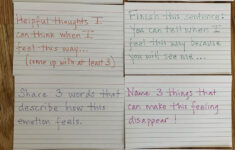 Helpful thoughts I
can think when I
feel this way...
(come up with at least 3)
Finish this sentence:
You can tell when I
feel this way because
you will see me...
Share 3 words that
describe how this
emotion feels.
Name 3 things that
can make this feeling
disappear!